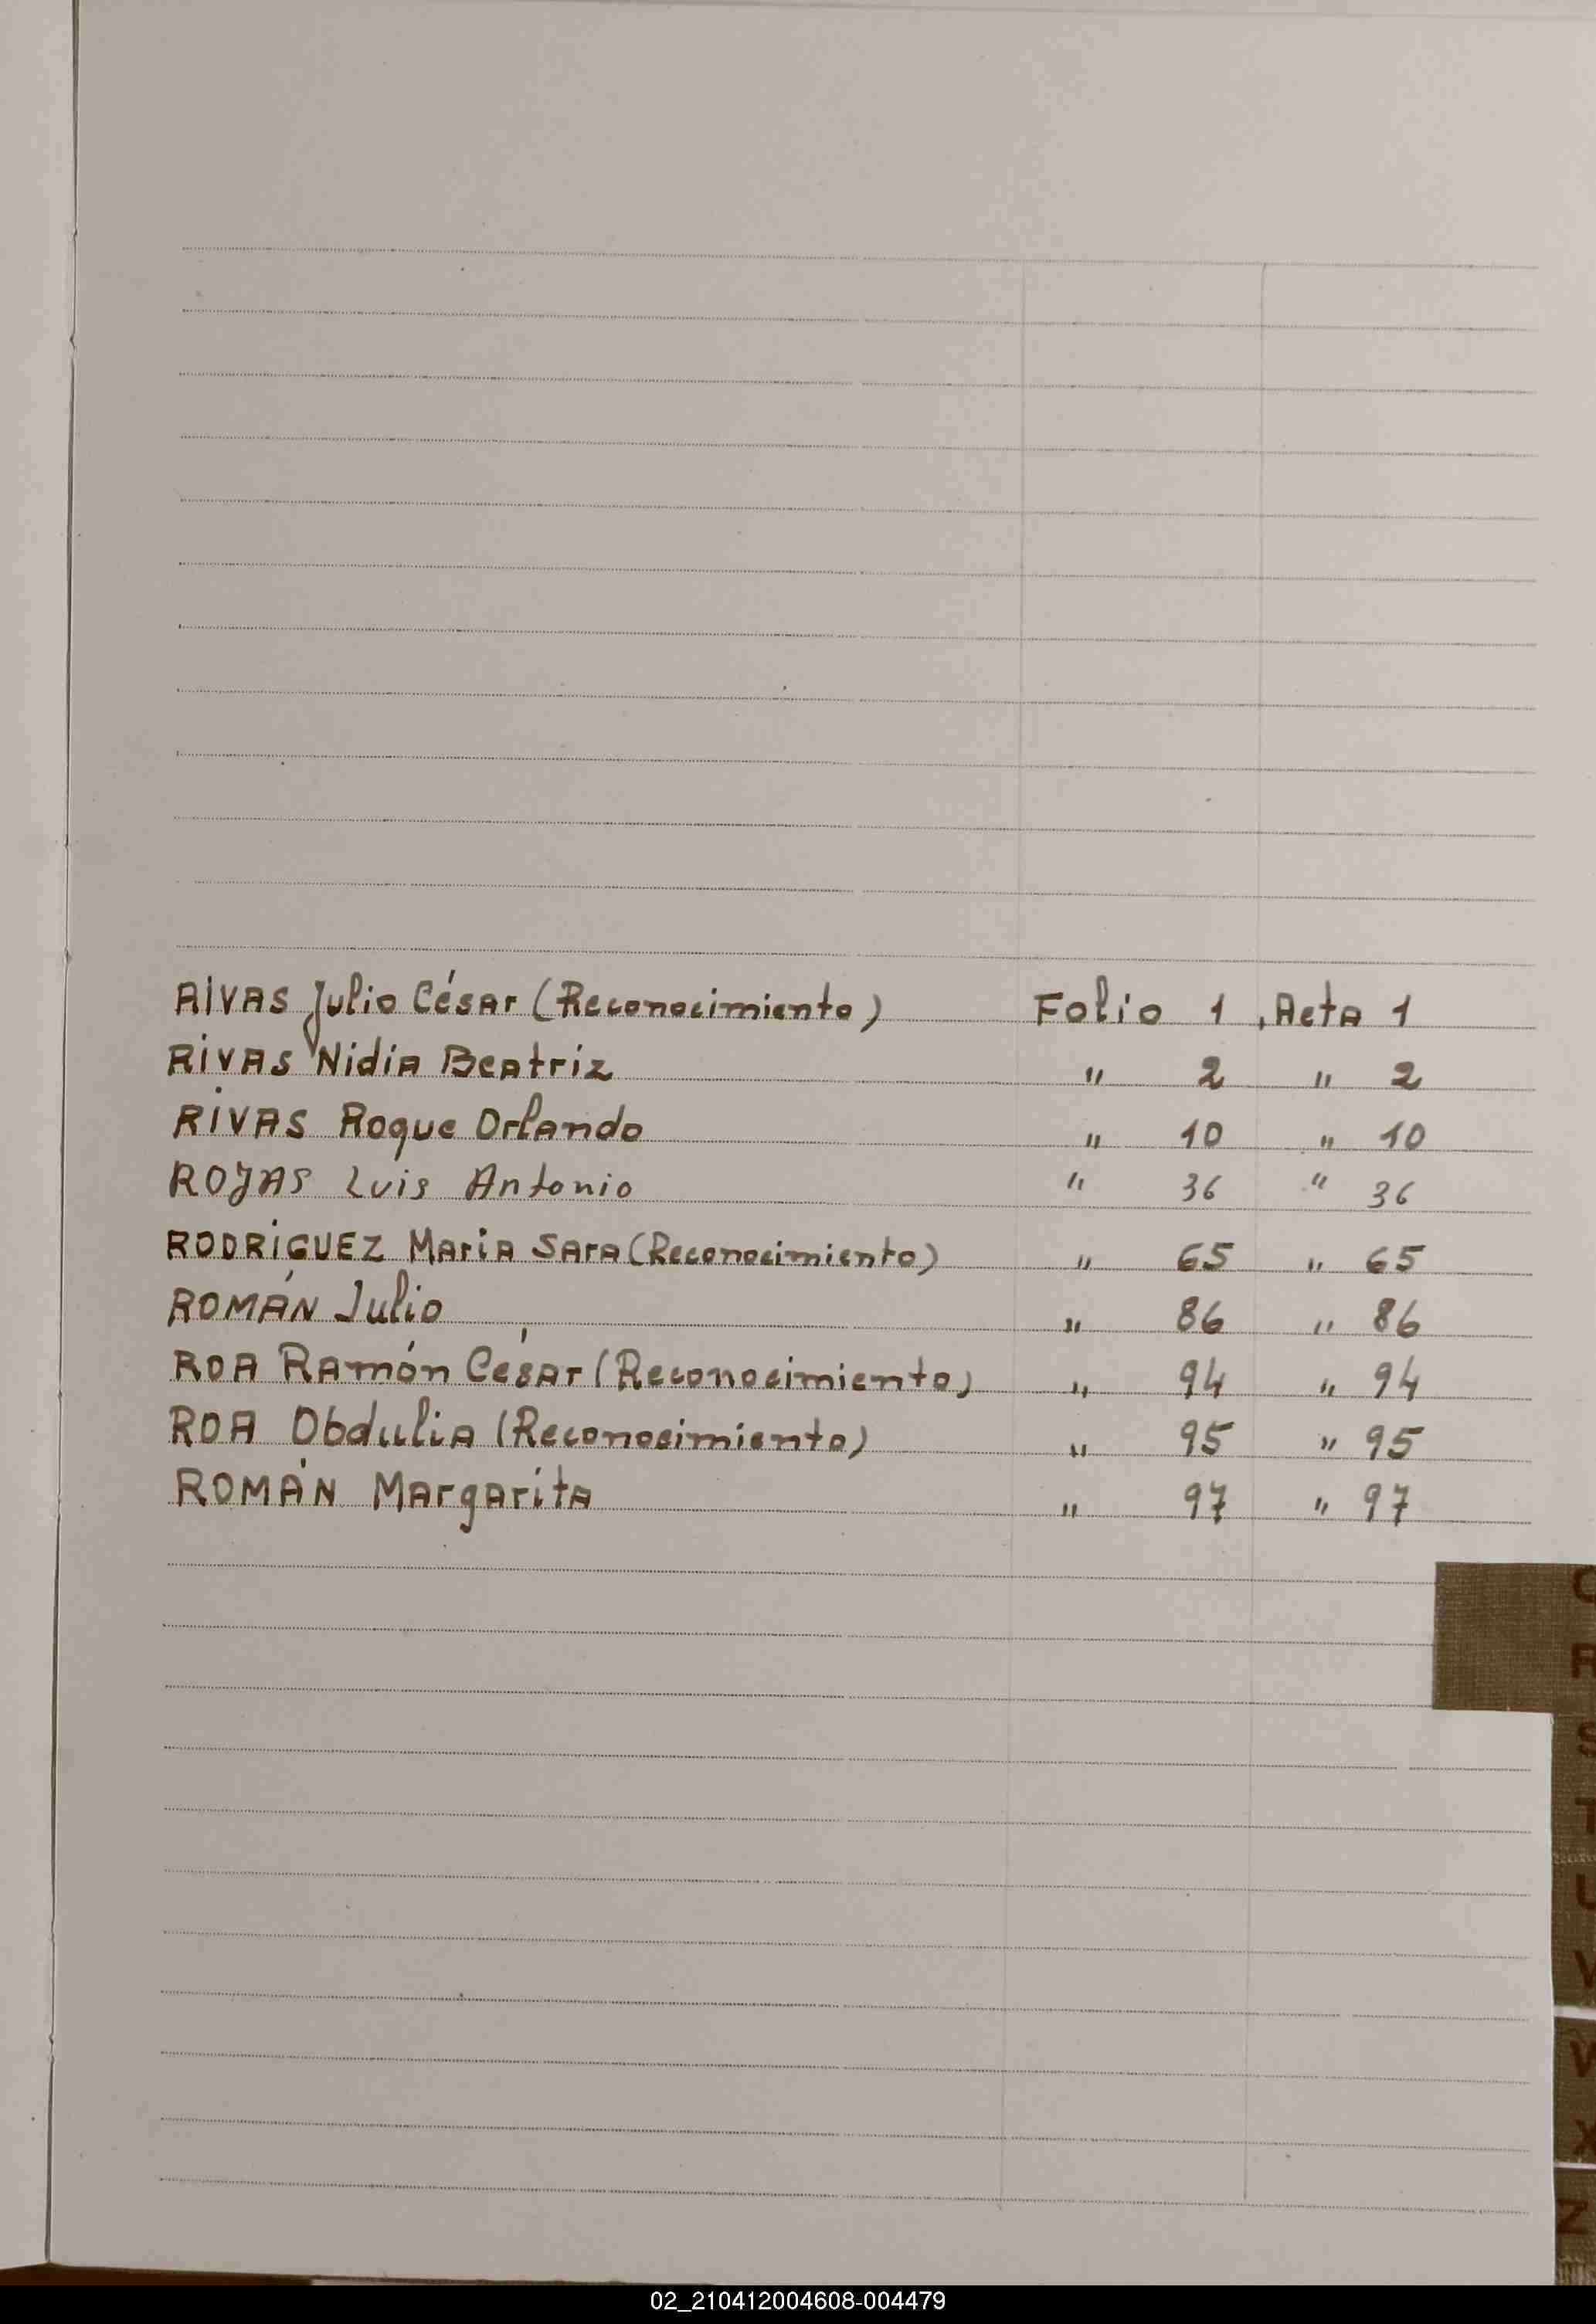 RIVAS Julio César (Reconocimiento) Folio 1, Acta 1
RIVAS Nidia Beatriz " 2 " 2
RIVAS Roque Orlando " 10 " 10
ROJAS Luis Antonio " 36 " 36
RODRÍGUEZ Maria Sara (Reconocimiento) " 65 " 65
ROMÁN Julio " 86 " 86
ROA Ramón César (Reconocimiento) " 94 " 94
ROA Obdulia (Reconocimiento) " 95 " 95
ROMÁN Margarita " 97 " 97
R
S
T
U
V
W
X
Z
02_210412004608-004479